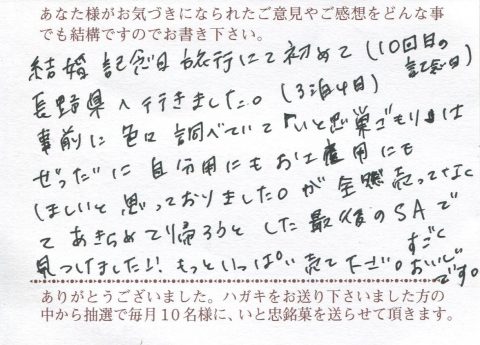 あなた様がお気づきになられたご意見やご感想をどんな事
でも結構ですのでお書き下さい。
結婚記念日旅行にて初めて(10回目の
記念日)
長野県へ行きました。(3泊4日)
事前に色々調べていて『いと忠巣ごもり』は
ぜったに自分用にもお土産用にも
ほしいと思っておりましたが全然売ってなく
てあきらめて帰ろうとした最後のSAで
見つけました!!もっといっぱい売て下さい。
すごく
おいしい
です。
ありがとうございました。ハガキをお送り下さいました方の
中から抽選で毎月10名様に、いと忠銘菓を送らせて頂きます。